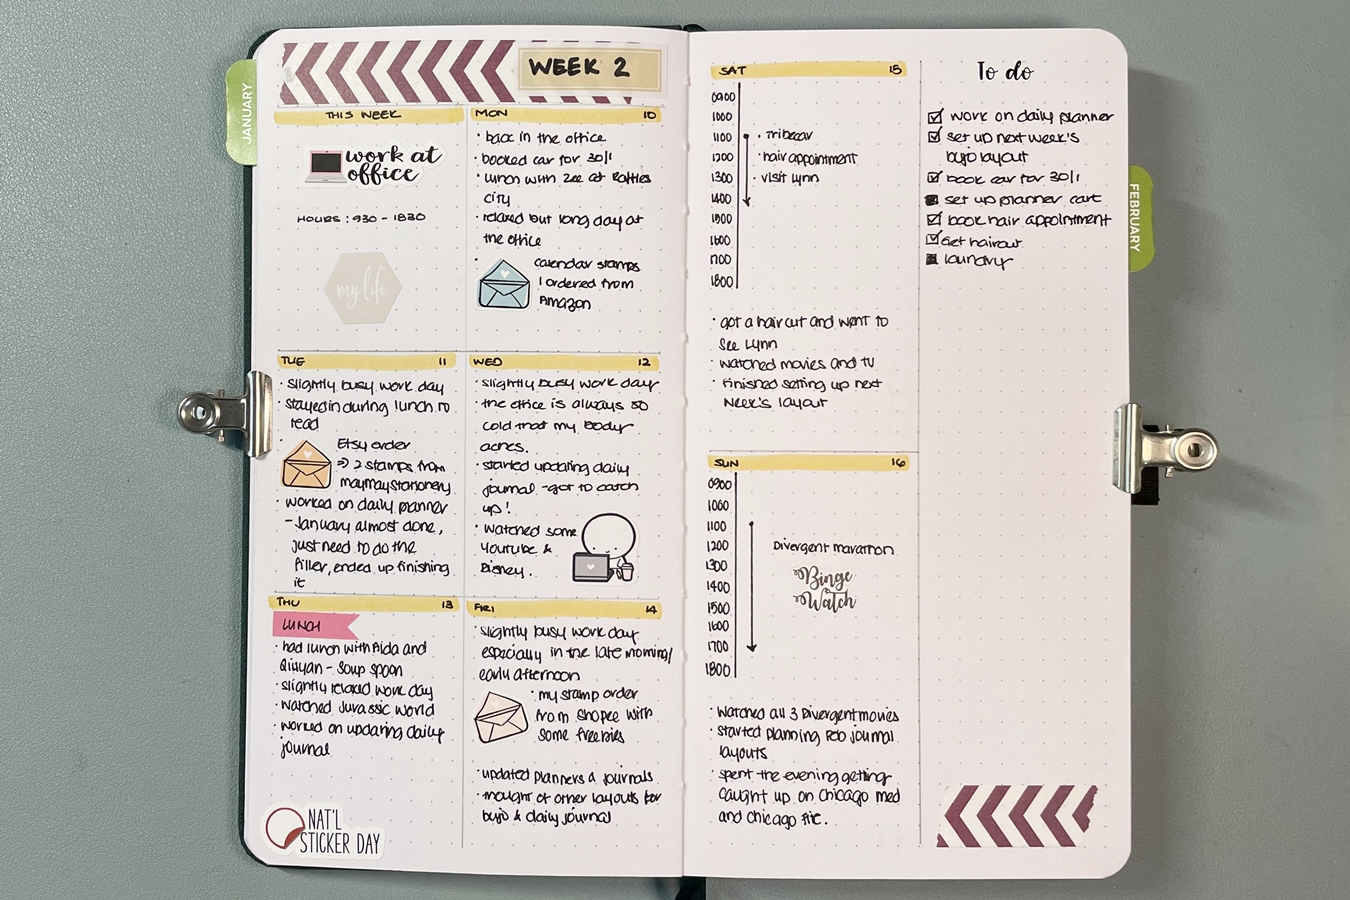 JANUARY
WEEK 2
THIS WEEK
work at
office
HOURS : 930 - 1830
my life
MON 10
• back in the office
• booked car for 30/1
• lunch with Zee at Raffles
city
• relaxed but long day at
the office
• calendar stamps
I ordered from
Amazon
TUE 11
• slightly busy work day
• stayed in during lunch to
read
Etsy order
⇒ 2 stamps from
maymaystationery
• worked on daily planner
- January almost done,
just need to do the
filler, ended up finishing
it
WED 12
• slightly busy work day
• the office is always so
cold that my body
aches.
• started updating daily
journal - got to catch
up!
• watched some
Youtube &
Disney.
THU 13
LUNCH
• had lunch with Aida and
Qiuyan - Soup Spoon
• slightly relaxed work day
• watched Jurassic World
• worked on updating daily
journal
NAT'L
STICKER DAY
FRI 14
• slightly busy work day
especially in the late morning/
early afternoon
• my stamp order
from Shopee with
some freebies
• updated planners & journals
• thought of other layouts for
bujo & daily journal
SAT 15
0900
1000
1100
1200
1300
1400
1500
1600
1700
1800
• Tribecar
• hair appointment
• visit Lynn
• got a haircut and went to
see Lynn
• watched movies and TV
• finished setting up next
week's layout
SUN 16
0900
1000
1100
1200
1300
1400
1500
1600
1700
1800
Divergent marathon
Binge
Watch
• watched all 3 Divergent movies
• started planning Feb journal
layouts
• spent the evening getting
caught up on Chicago Med
and Chicago Fire.
To do
☑ work on daily planner
☑ set up next week's
bujo layout
☑ book car for 30/1
■ set up planner cart
☑ book hair appointment
☑ get haircut
■ laundry
FEBRUARY